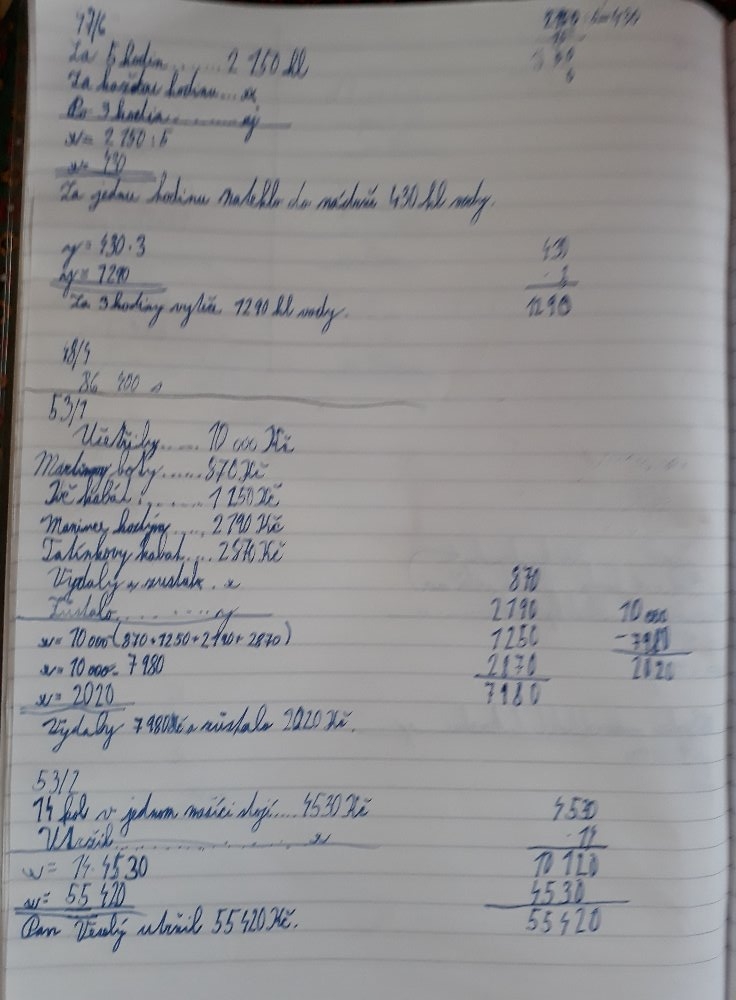 47/6
2150:5=430
Za 5 hodin........2 150 hl
Za každou hodinu...x
Po 3 hodin..............y
x= 2 150:5
x= 430
Za jednu hodinu nateklo do nádrže 430 hl vody.
y= 430·3
y= 1290
Za 3 hodiny vyteče 1290 hl vody.
430
·3
1290
48/4
86 400 s
53/1
Ušetřiby..... 10 000 Kč
Martinovy boty......870Kč
kabát.........1 250Kč
Mamince hodiny.....2 790 Kč
Tatínkovy kabát....2870Kč
Vydaly a zustalo..x
Zustalo.............y
x= 10 000(870+1250+2790+2870)
x= 10 000-7980
x= 2020
Vydaly 7980Kč a zůstalo 2020 Kč.
870
2790
1250
2870
7980
10 000
-7980
2020
53/2
14 kol v jednom měsíci stojí....4530 Kč
Utržil.....................x
x= 14·4530
x= 55 420
Pan Veselý utržil 55420Kč.
4530
·14
10 120
4530
55420